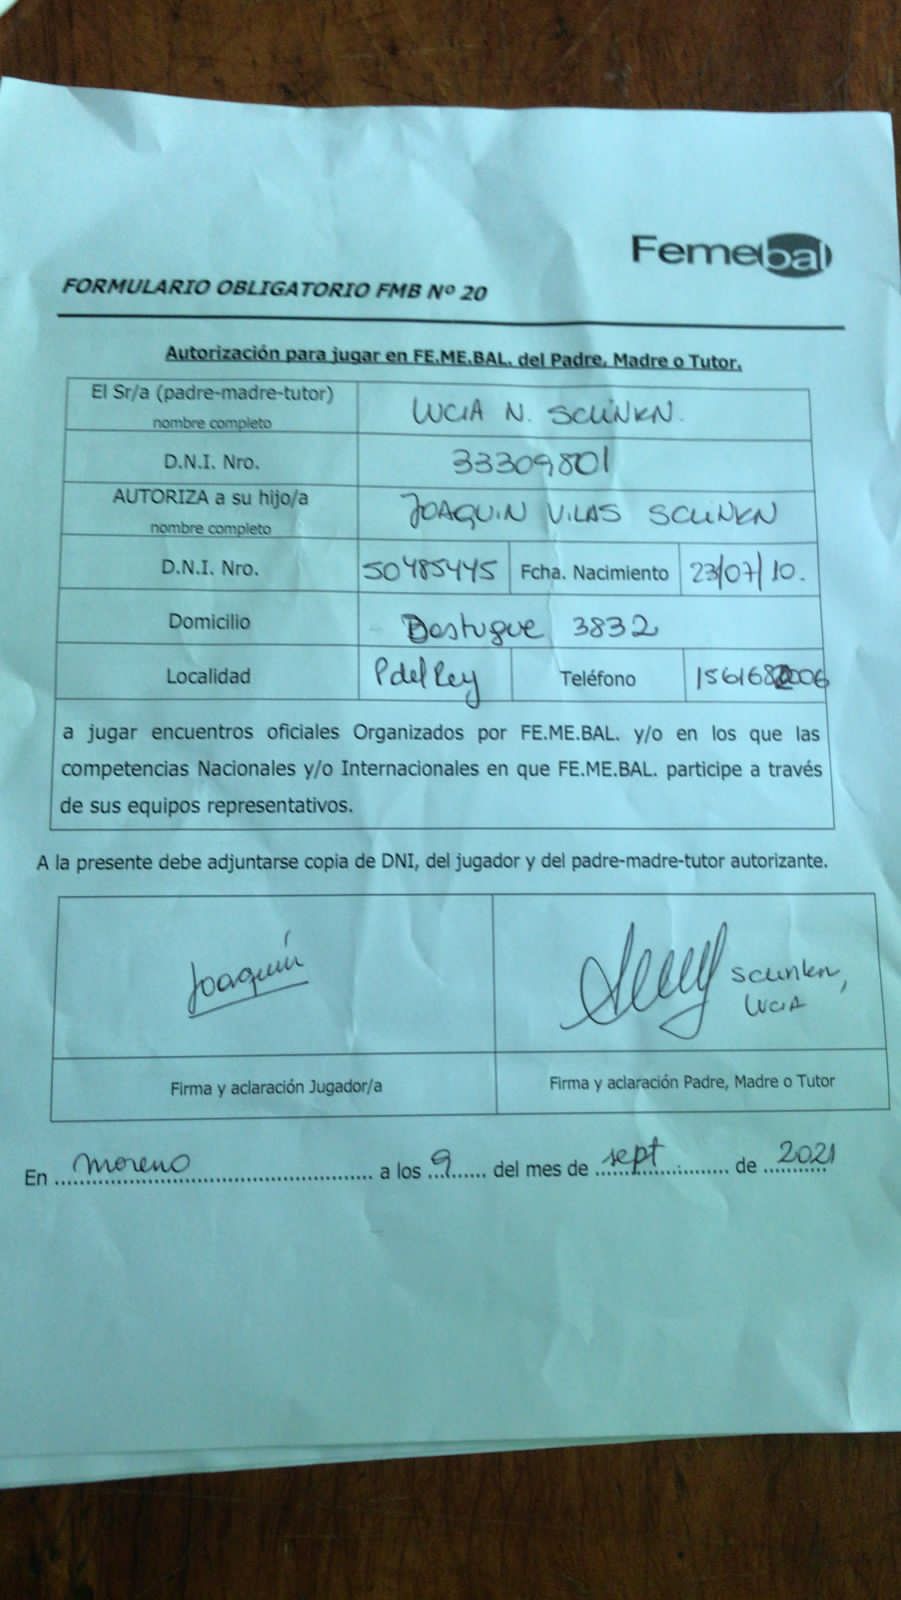 Femebal
FORMULARIO OBLIGATORIO FMB Nº 20
Autorización para jugar en FE.ME.BAL. del Padre, Madre o Tutor.
El Sr/a (padre-madre-tutor) LUCIA N. SCLINKN.
nombre completo
D.N.I. Nro. 33309801
AUTORIZA a su hijo/a JOAQUIN VILAS SCLINKN
nombre completo
D.N.I. Nro. 50485445 Fcha. Nacimiento 23/07/10.
Domicilio 3832
Localidad P del Rey Teléfono
a jugar encuentros oficiales Organizados por FE.ME.BAL. y/o en los que las
competencias Nacionales y/o Internacionales en que FE.ME.BAL. participe a través
de sus equipos representativos.
A la presente debe adjuntarse copia de DNI, del jugador y del padre-madre-tutor autorizante.
Joaquín
SCLINKN,
LUCIA
Firma y aclaración Jugador/a Firma y aclaración Padre, Madre o Tutor
En moreno a los 9 del mes de sept de 2021